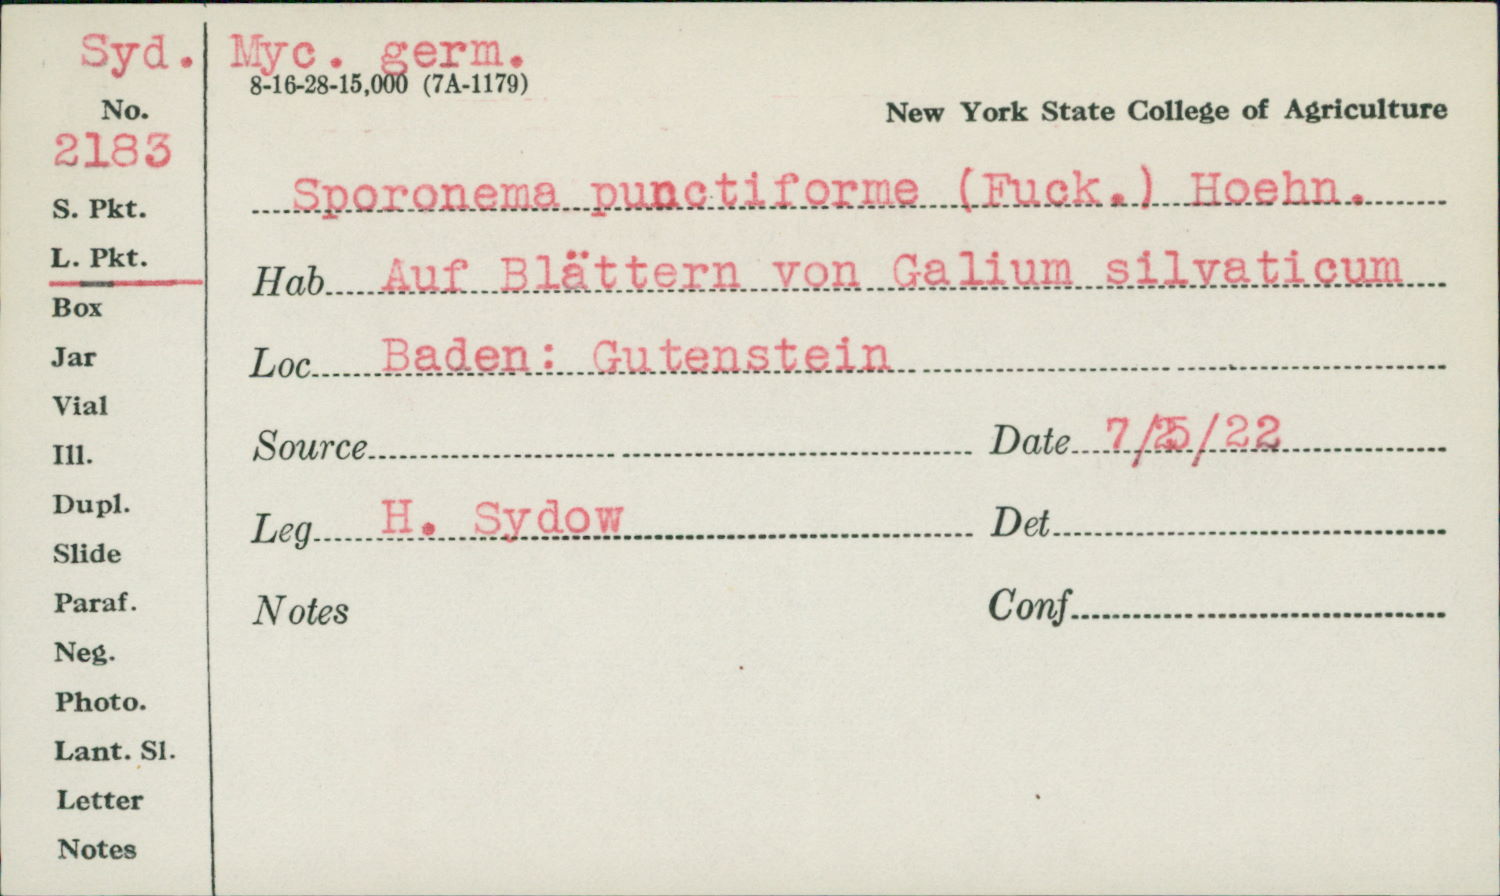 Syd. Myc. germ.
8-16-28-15,000 (7A-1179)
No.
New York State College of Agriculture
2183
Sporonema punctiforme (Fuck.) Hoehn.
S. Pkt.
L. Pkt.
Hab Auf Blättern von Galium silvaticum
Box
Jar
Loc Baden: Gutenstein
Vial
Ill.
Source Date 7/25/22
Dupl.
Leg H. Sydow Det
Slide
Paraf.
Notes Conf
Neg.
Photo.
Lant. Sl.
Letter
Notes